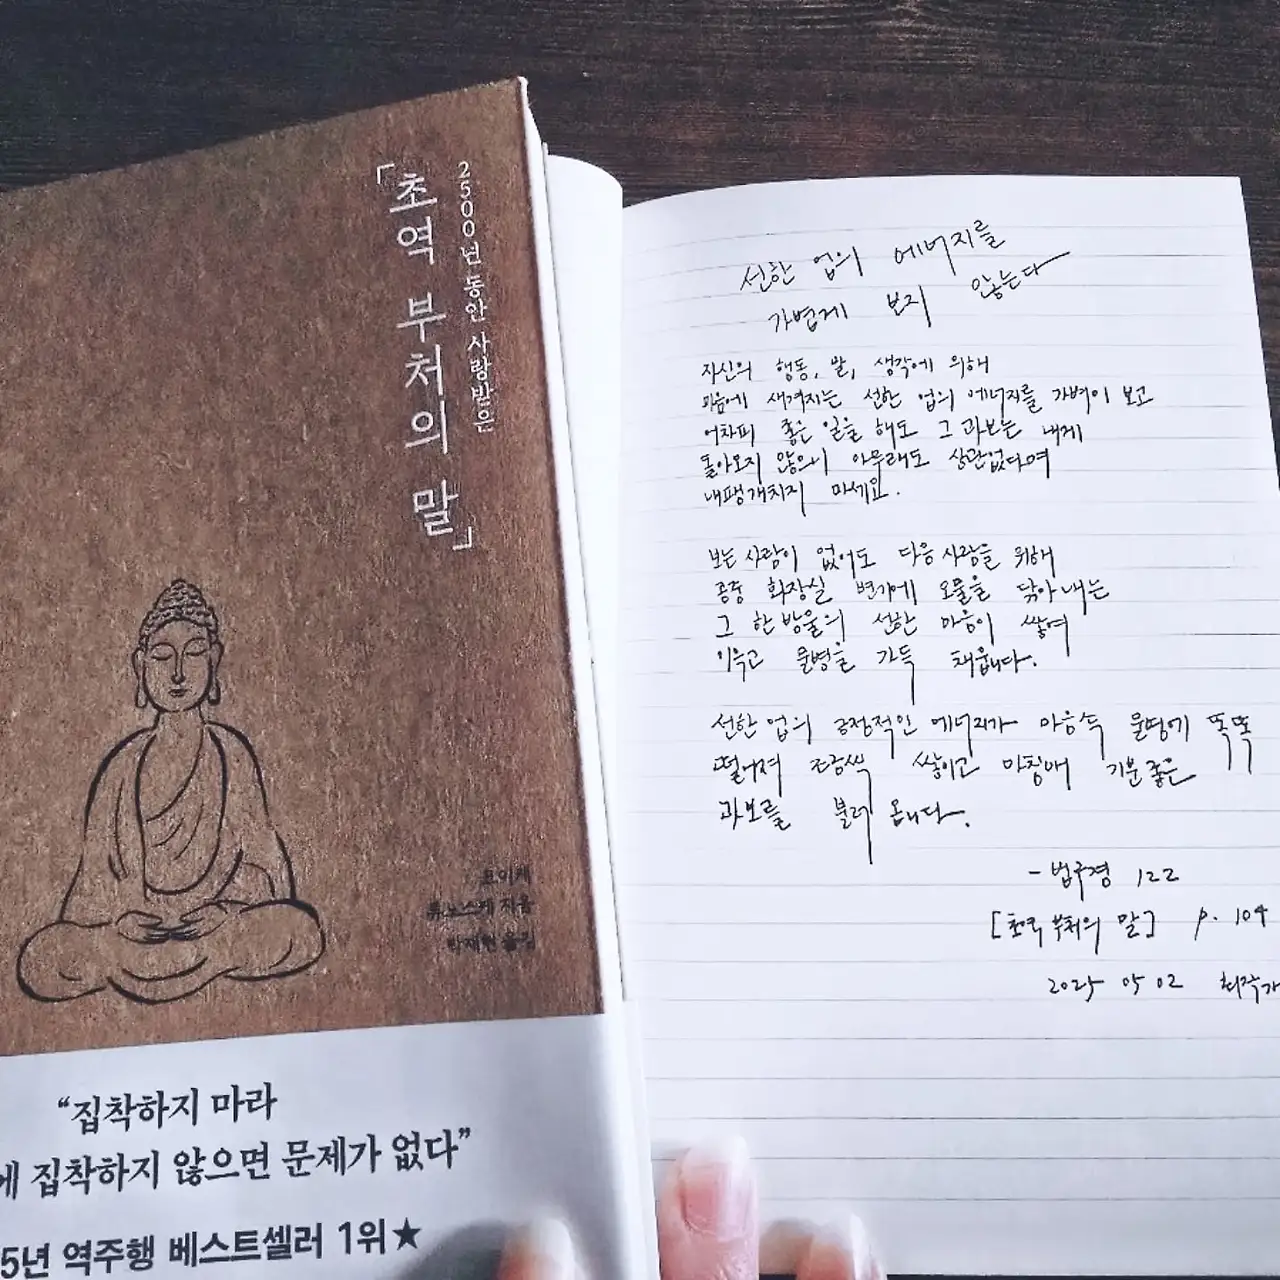 2500년 동안 사랑받은
「초역 부처의 말」
코이케
류노스케 지음
박재현 옮김
“집착하지 마라
에 집착하지 않으면 문제가 없다”
5년 역주행 베스트셀러 1위★
선한 업의 에너지를
가볍게 보지 않는다
자신의 행동, 말, 생각에 위해
마음에 새겨지는 선한 업의 에너지를 가벼이 보고
어차피 좋은 일을 해도 그 과보는 내게
돌아오지 않으니 아무래도 상관없다며
내팽개치지 마세요.
보는 사람이 없어도 다음 사람을 위해
공중 화장실 변기에 오물을 닦아내는
그 한 방울의 선한 마음이 쌓여
이윽고 물병을 가득 채웁니다.
선한 업의 긍정적인 에너지가 마음속 물병에 똑똑
떨어져 조금씩 쌓이고 마침내 기분 좋은
과보를 불러 옵니다.
- 법구경 122
[초역 부처의 말] p. 104
2025 05 02 최작가